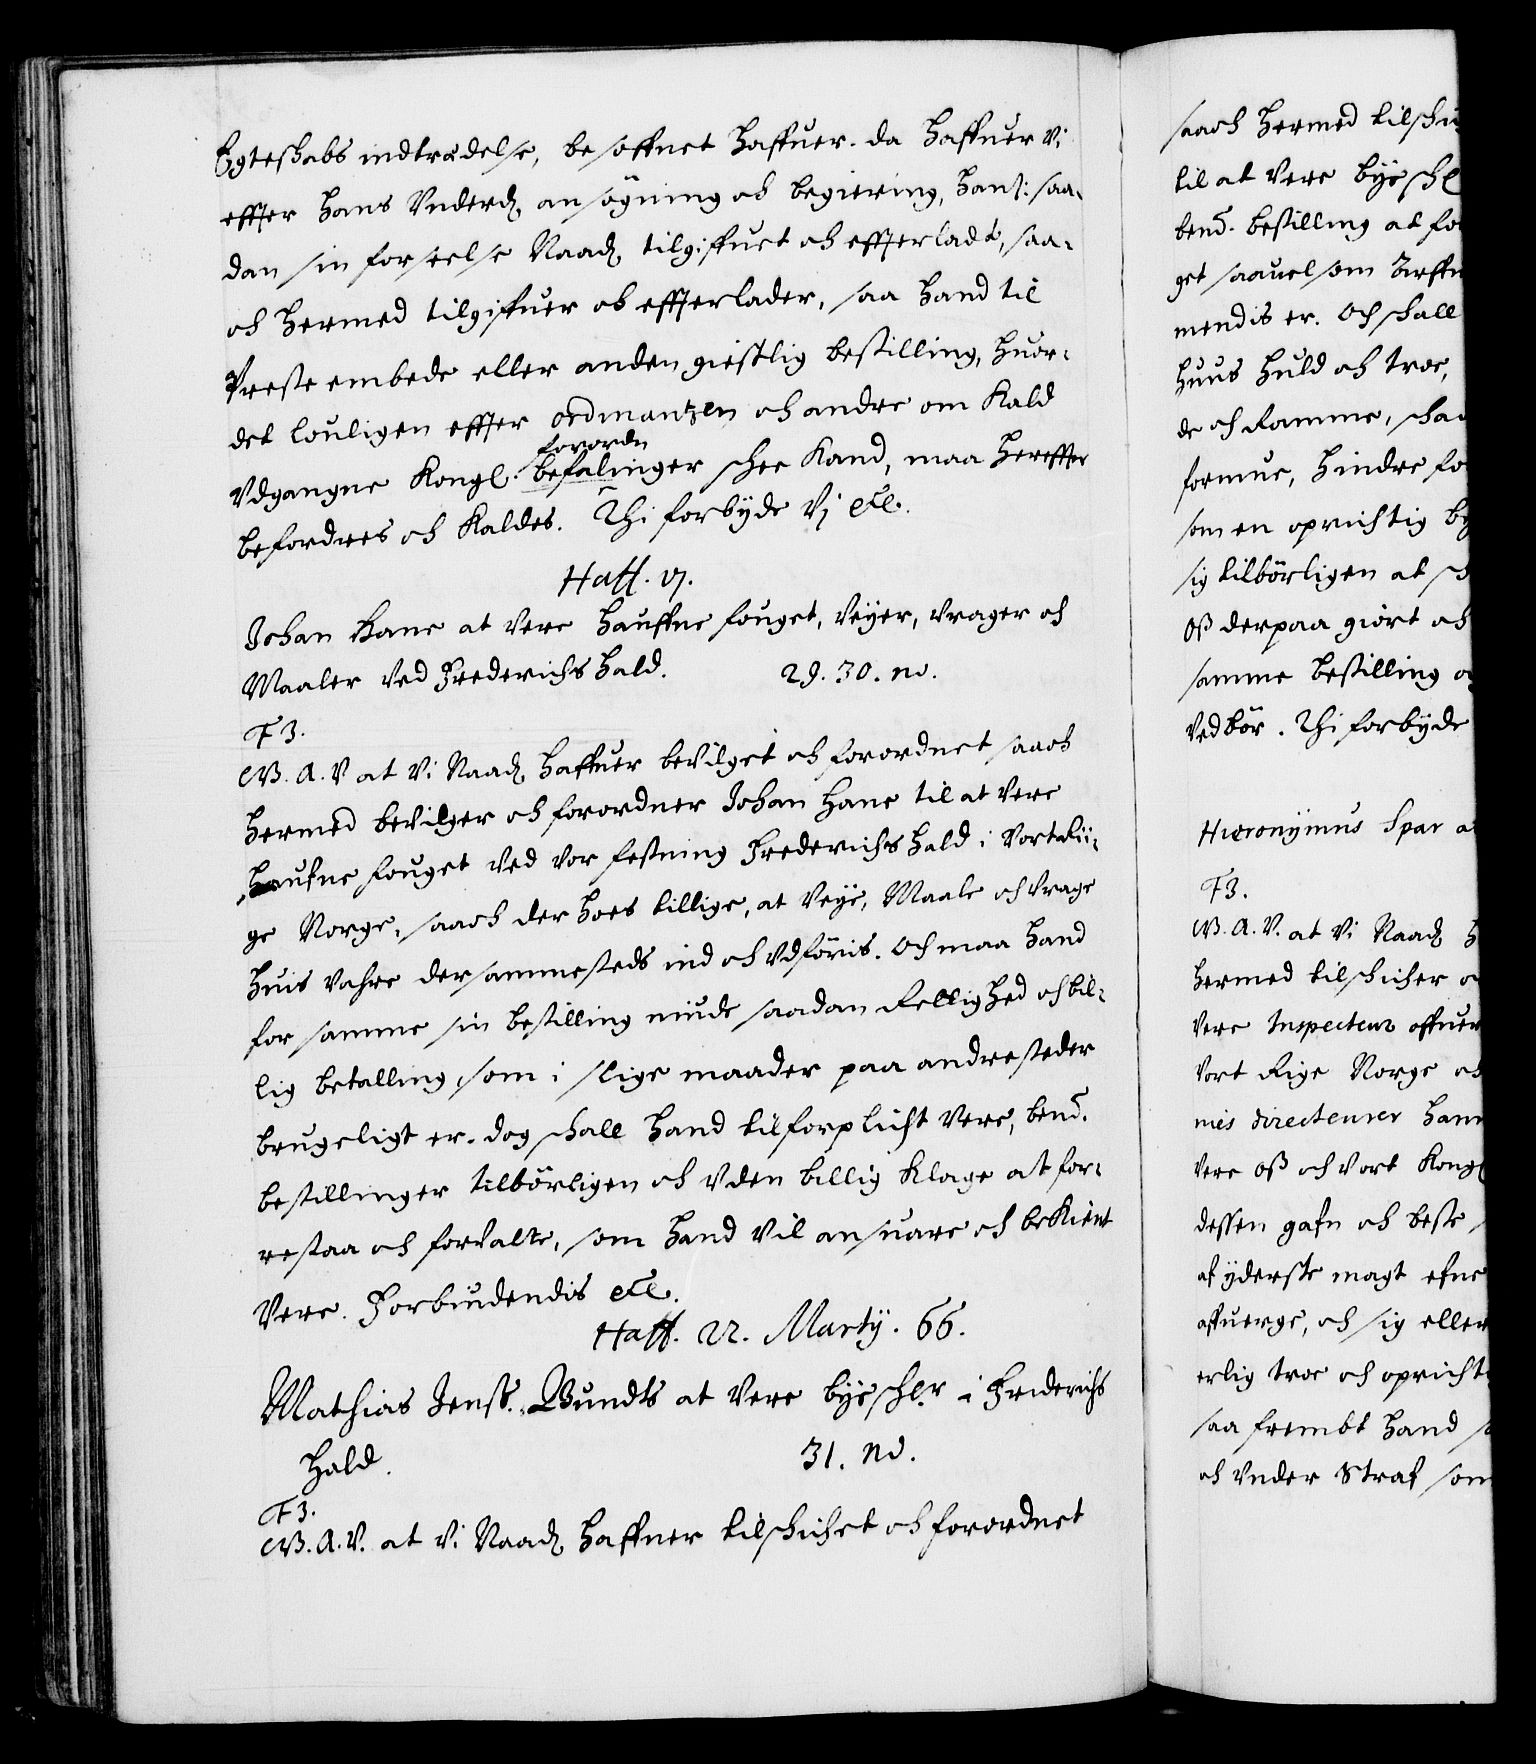 Egteskabs indtrædelse, besoffuet haffuer. da haffuer vi
effter hans Underd. ansögning och begiering, hans: saa-
dan sin forseelse Naad. tilgiffuet och effterladt, saa-
och hermed tilgiffuer och effterlader, saa hand til
Preste embede eller anden giestlig bestilling, huor-
det louligen effter ordinantzen och andre om Kald
forordn
Udgangne Kongl. befalinger schee Kand, maa hereffter
befordres och Kaldes. Thi forbyde Vj etc.
Haff. 17.
Johan Hane at vere Hauffne fouget, Veyer, Vrager och
Maaler ved Frederichshald. 29. 30. no.
F 3.
G. A. V at Vi Naad. haffuer bevilget och forordnet saaoch
hermed bevilger och forordner Johan Hane til at vere
Haufne fouget ved vor festning Frederichshald i vort Rii-
ge Norge, saaoch der hoes tillige, at veye, Maale och Vrage
huis vahre dersammesteds ind och udföris. Och maa hand
for samme sin bestilling niude saadan Rettighed och bil-
lig betalling, som i slige maader paa andre steder
brugeligt er. dog schall hand tilforplicht vere, bend.
bestillinger tilbörligen och uden billig Klage at for-
restaa och forvalte, som hand vil ansuare och bekient
vere. Forbiudendis etc.
Haff. 22. Martij. 66.
Mathias Jenss. Bundts at vere byeschr i Friderichs
hald. 31. no.
F3.
G. A. V. at Vi Naad. haffuer tilschichet och forordnet
saaoch hermed tilschi
til at vere byesch
bend. bestilling at fo
get saauel som
mendis er. Och schall
huus huld och troe,
de och Ramme, schad
formue, hindre fo
som en oprichtig
sig tilbörligen at sch
oss derpaa giort och
samme bestilling
vedbör. Thi forbyde
Hieronymus Spar a
F3.
G. A. V. at Vi Naad. h
hermed tilschicher o
vere Inspecteur offuer
vort Rige Norge och
nis directeurer hann
vere oss och vort Kongl
dessen gafn och beste
af yderste magt efne
affuerge, och sig eller
erlig troe och opricht
saa frembt hand s
och under Straf som